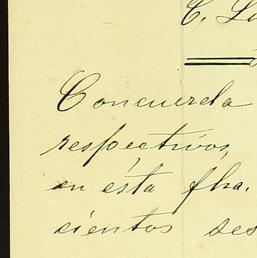 C. L
Concuerda
respectivos,
en ésta fha.
cientos ses